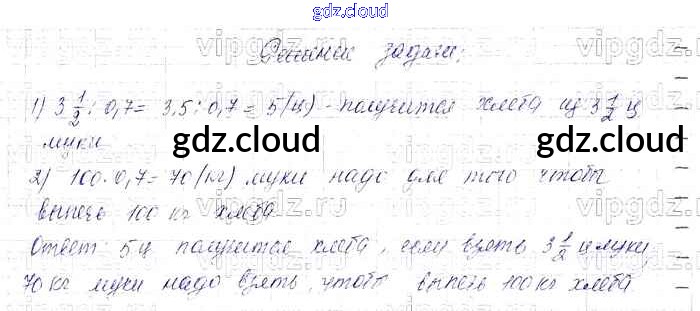 gdz.cloud
Решение задачи:
1) 3 1/2 : 0,7 = 3,5 : 0,7 = 5 (ц) - получится хлеба из 3 1/2 ц
муки
gdz.cloud
2) 100 · 0,7 = 70 (кг) муки надо для того чтобы
выпечь 100 кг хлеба
Ответ: 5 ц получится хлеба, если взять 3 1/2 ц муки,
70 кг муки надо взять, чтобы выпечь 100 кг хлеба
gdz.cloud